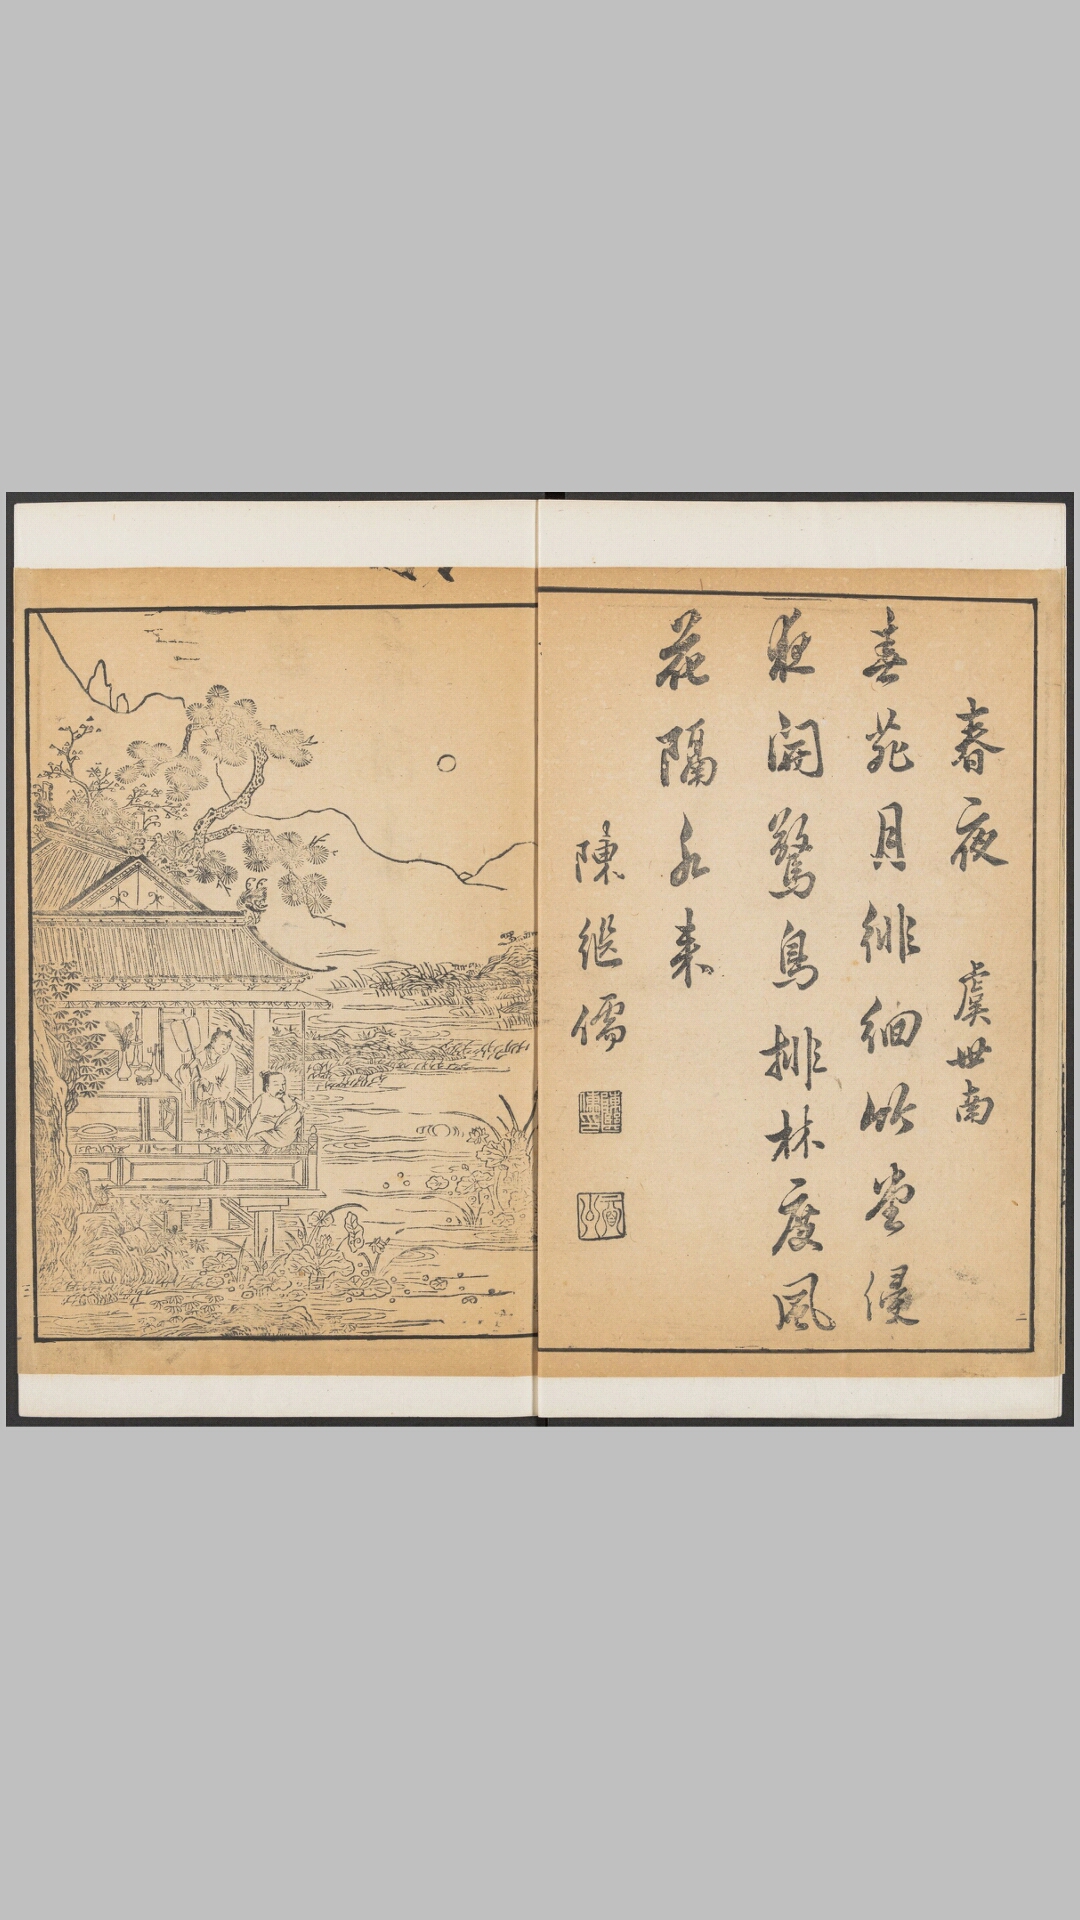 春夜 虞世南
春苑月徘徊竹堂侵
夜開驚鳥排林度風
花隔水來
陳継儒
眉公